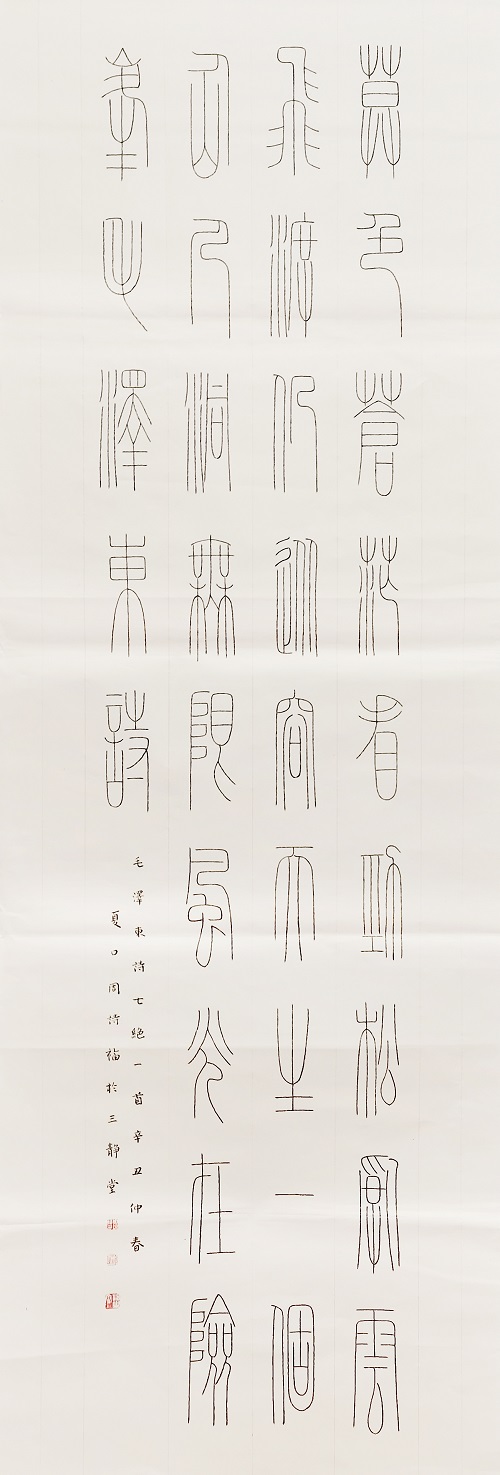 莫色蒼茫看勁松亂雲
飛渡仍從容天生一個
仚人洞無限風光在險
峯毛澤東詩
毛澤東詩七絕一首辛丑仲春
夏口周詩福於三靜堂